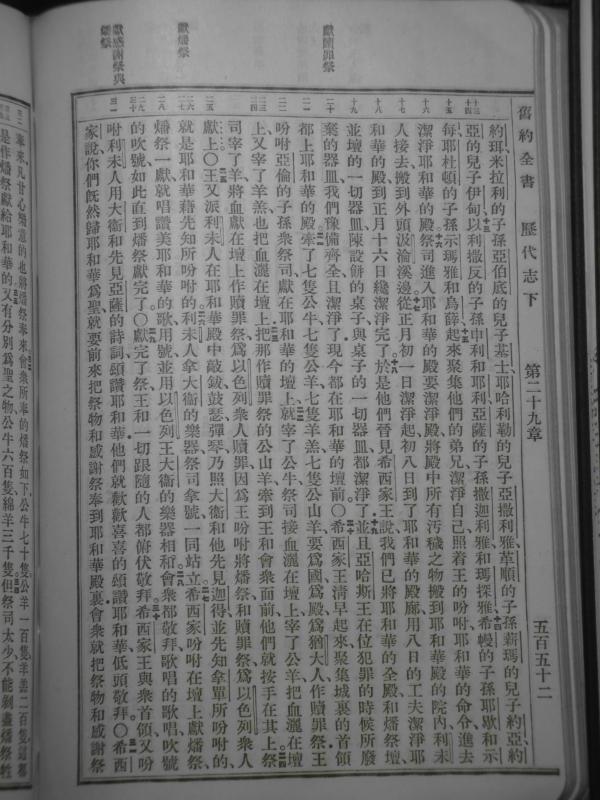 舊約全書 歷代志下 第二十九章 五百五十二
獻贖罪祭
獻燔祭
獻感謝祭與
燔祭
約珥米拉利的子孫亞伯底的兒子基士、耶哈利勒的兒子亞撒利雅革順的子孫薪瑪的兒子約亞約
亞的兒子伊甸以利撒反的子孫申利和耶利亞薩的子孫撒迦利雅和瑪探雅希幔的子孫耶歇和示
每耶杜頓的子孫示瑪雅和烏薛起來聚集他們的弟兄潔淨自己照着王的吩咐耶和華的命令進去
潔淨耶和華的殿祭司進入耶和華的殿要潔淨殿將殿中所有汚穢之物搬到耶和華殿的院內利未
人接去搬到外頭汲淪溪邊從正月初一日潔淨起初八日到了耶和華的殿廊用八日的工夫潔淨耶
和華的殿到正月十六日纔潔淨完了於是他們晉見希西家王說我們已將耶和華的全殿和燔祭壇
並壇的一切器皿陳設餅的桌子與桌子的一切器皿都潔淨了並且亞哈斯王在位犯罪的時候所廢
棄的器皿我們豫備齊全且潔淨了現今都在耶和華的壇前〇希西家王清早起來聚集城裏的首領
都上耶和華的殿牽了七隻公牛七隻公羊七隻羊羔七隻公山羊要爲國爲殿爲猶大人作贖罪祭王
吩咐亞倫的子孫衆祭司獻在耶和華的壇上就宰了公牛祭司接血灑在壇上宰了公羊把血灑在壇
上又宰了羊羔也把血灑在壇上把那作贖罪祭的公山羊牽到王和會衆面前他們就按手在其上祭
司宰了羊將血獻在壇上作贖罪祭爲以色列衆人贖罪因爲王吩咐將燔祭和贖罪祭爲以色列衆人
獻上〇王又派利未人在耶和華殿中敲鈸鼓瑟彈琴乃照大衞和他先見迦得並先知拿單所吩咐的
就是耶和華藉先知所吩咐的利未人拿大衞的樂器祭司拿號一同站立希西家吩咐在壇上獻燔祭
燔祭一獻就唱讚美耶和華的歌用號並用以色列王大衞的樂器相和會衆都敬拜歌唱的歌唱吹號
的吹號如此直到燔祭獻完了〇獻完了祭王和一切跟隨的人都俯伏敬拜希西家王與衆首領又吩
咐利未人用大衞和先見亞薩的詩詞頌讚耶和華他們就歡歡喜喜的頌讚耶和華低頭敬拜〇希西
家說你們旣然歸耶和華爲聖就要前來把祭物和感謝祭奉到耶和華殿裏會衆就把祭物和感謝祭
奉來凡甘心樂意的也將燔祭奉來會衆所奉的燔祭如下公牛七十隻公羊一百隻羊羔二百隻這都
是作燔祭獻給耶和華的又有分別爲聖之物公牛六百隻綿羊三千隻但祭司太少不能剝盡燔祭牲